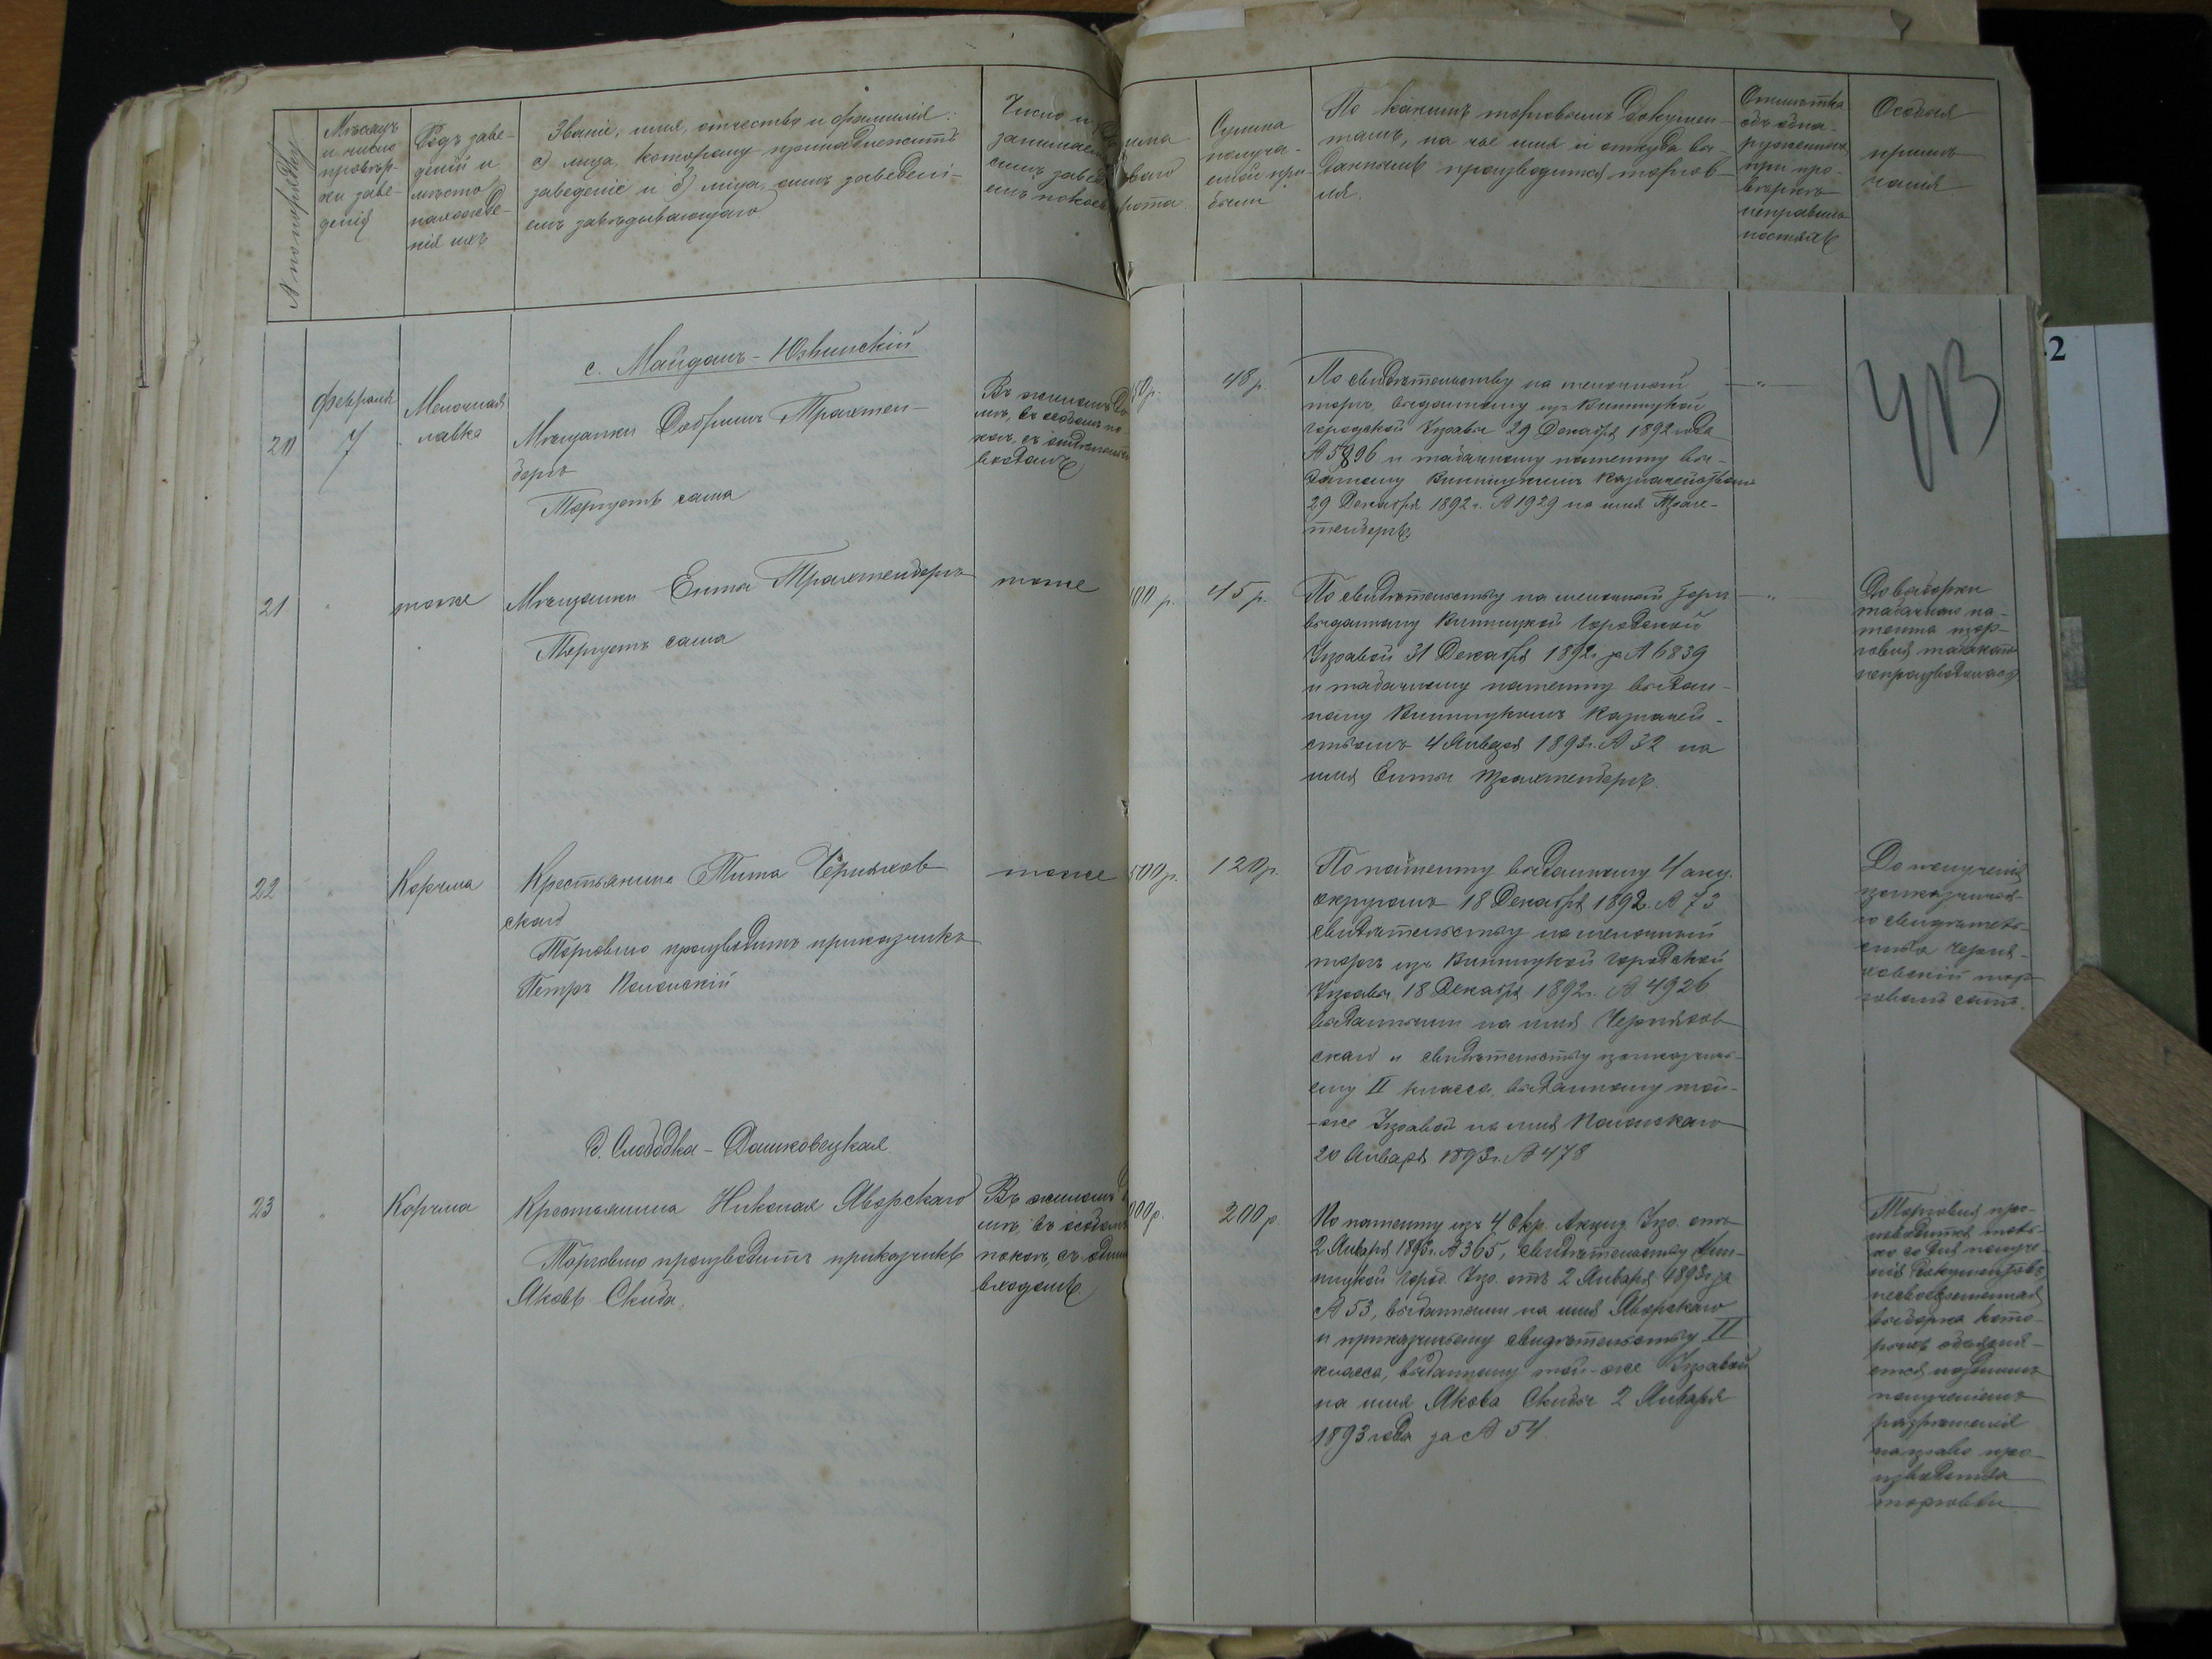 № по порядку
Мѣсяцъ
и число
провѣр-
ки заве-
денія
Родъ заве-
деній и
мѣсто
нахожде-
нія ихъ
Званіе, имя, отчество и фамилія:
а) лица, которому принадлежитъ
заведеніе и б) лица, симъ заведені-
емъ завѣдывающаго
Число и
занимаем
симъ завед
емъ покоев
Сумма
получа-
емой при-
были
По какимъ торговымъ докумен-
тамъ, на чье имя и откуда вы-
даннымъ производится торгов-
ля.
Отмѣтка
объ обна-
руженныхъ
при про-
вѣркѣ
неправиль-
ностяхъ
Особыя
примѣ-
чанія
с. Майданъ-Юзвинскій
20
Февраля
7
Мелочная
лавка
Мѣщанки Добришъ Трахтен-
бергъ
Торгуетъ сама
Въ жиломъ до
мѣ, въ особомъ по-
коѣ, съ отдѣльнымъ
входомъ
50 р.
48 р.
По свидѣтельству на мелочной
торгъ, выданному изъ Винницкой
городской Управы 29 Декабря 1892 года
№ 5896 и табачному патенту вы-
данному Винницкимъ Казначействомъ
29 Декабря 1892 г. № 1929 на имя Трах-
тенбергъ
413
21
"
тоже
Мѣщанки Ента Трахтенбергъ
Торгуетъ сама
тоже
100 р.
45 р.
По свидѣтельству на мелочной торгъ
выданному Винницкой Городской
Управой 31 Декабря 1892 г. за № 6839
и табачному патенту выдан-
ному Винницкимъ Казначей-
ствомъ 4 Января 1893 г. № 32 на
имя Енты Трахтенбергъ.
"
До выборки
табачнаго па-
тента тор-
говля табакомъ
непроизводилась
22
"
Корчма
Крестьянина Тита Черняхов
скаго
Торговлю производитъ приказчикъ
Петръ Полонскій
тоже
500 р.
120 р.
По патенту выданному 4 акц.
округомъ 18 Декабря 1892. № 73
свидѣтельству на мелочный
торгъ изъ Винницкой городской
Управы 18 Декабря 1892 г. № 4926
выданнымъ на имя Черняхов
скаго и свидѣтельству приказчичь-
ему II класса, выданному той-
-же Управой на имя Полонскаго
20 Января 1893 г. № 478
До полученія
приказчичья-
го свидѣтель-
ства Черня-
ховскій тор-
говалъ самъ.
д. Слободка-Дашковецкая
23
"
Корчма
Крестьянина Николая Яворскаго
Торговлю производитъ приказчикъ
Яковъ Скиба.
Въ жиломъ д
мѣ, въ особомъ
покоѣ, съ однимъ
входомъ
000 р.
200 р.
По патенту изъ 4 Окр. Акциз. Упр. отъ
2 Января 1893 г. № 365, свидѣтельству Вин-
ницкой Город. Упр. отъ 2 Января 1893 г за
№ 53, выданнымъ на имя Яворскаго
и приказчичьему свидѣтельству II
класса, выданному той-же Управой
на имя Якова Скибы 2 Января
1893 года за № 54.
Торговля про-
изводится толь-
ко со дня получе-
нія документовъ,
несвоевременная
выборка кото-
рыхъ объясня-
ется позднимъ
полученіемъ
разрѣшенія
на право про-
изводства
торговли
2